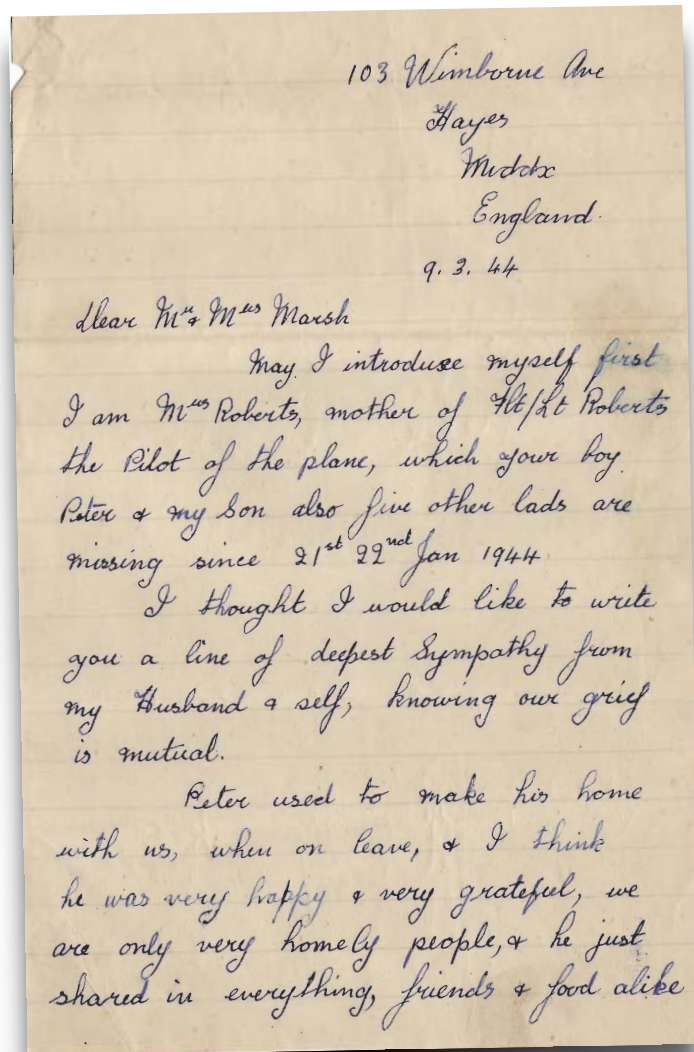 103 Wimborne Ave
Hayes
Middx
England.
9. 3. 44
Dear Mr & Mrs Marsh
May I introduce myself first
I am Mrs Roberts, mother of Flt/Lt Roberts
the Pilot of the plane, which your boy
Peter & my Son also five other lads are
missing since 21st 22nd Jan 1944.
I thought I would like to write
you a line of deepest Sympathy from
my Husband & self, knowing our grief
is mutual.
Peter used to make his home
with us, when on leave, & I think
he was very happy & very grateful, we
are only very homely people, & he just
shared in everything, friends & food alike